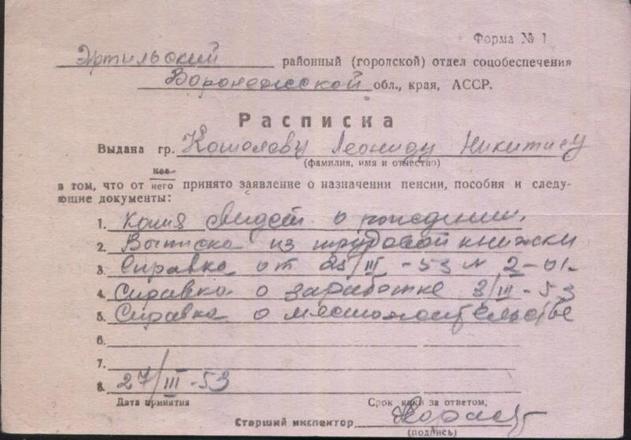 Форма № 1
Эртильский районный (городской) отдел соцобеспечения
Воронежской обл., края, АССР.
Расписка
Выдана гр. Кошелеву Леониду Никитичу
(фамилия, имя и отчество)
в том, что от нее него принято заявление о назначении пенсии, пособия и следу-
ющие документы:
1. Копия свидет о рождении.
2. Выписка из трудовой книжки
3. Справка от /III-53 № 2-01.
4. Справка о заработке 3/III-53
5. Справка о местожительстве
6.
7.
8. 27/III-53
Дата принятия Срок явки за ответом,
Старший инспектор
(подпись)